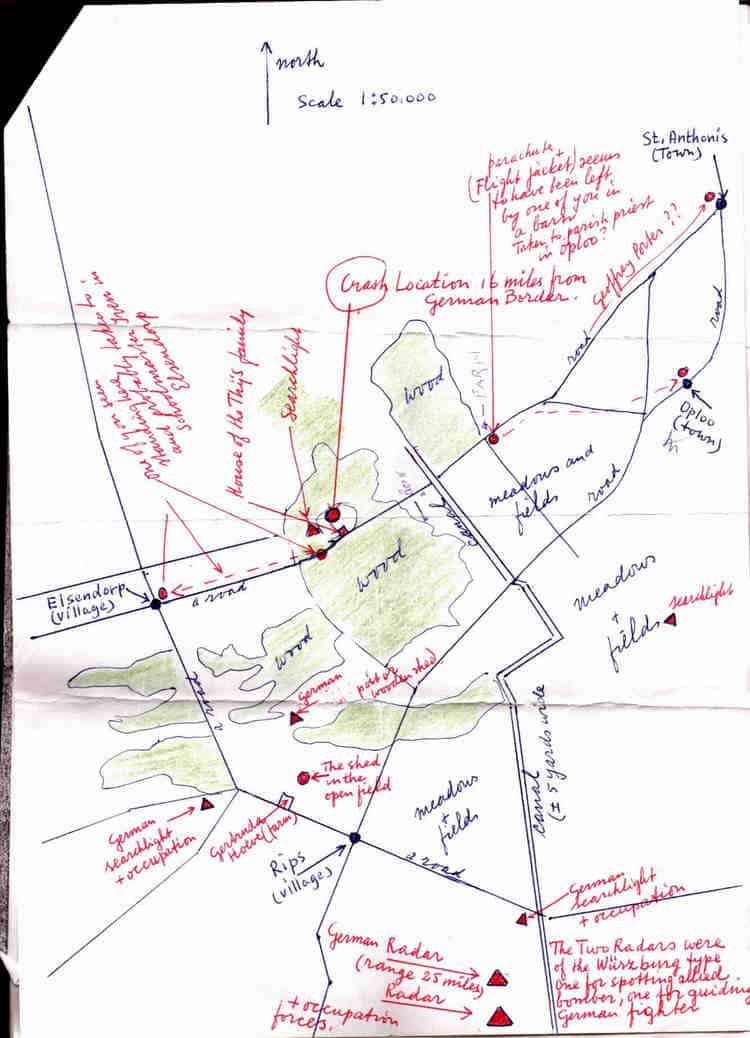 north
Scale 1:50.000
St. Anthonis
(Town)
parachute +
(Flight jacket) seems
to have been left
by one of you in
a barn
Taken to parish priest
in Oploo?
Geoffrey Porter ??
Crash Location 16 miles from
German Border.
One of you seen
House of the Thijs family
Searchlight
wood
FARM
road
road
Oploo
(town)
meadows and
fields
road
canal
wood
Elsendorp
(village)
a road
meadows
+
fields
searchlight
wood
German
post or
wooden shed
a road
The shed
in the
open field
canal
(± 5 yards wide
meadows
+
fields
German
searchlight
+ occupation
Gertruda
Hoeve (farm)
Rips
(village)
a road
German
searchlight
+ occupation
German Radar
(range 25 miles)
Radar
+ occupation
forces.
The Two Radars were
of the Würzburg type
one for spotting allied
bomber, one for guiding
German fighter